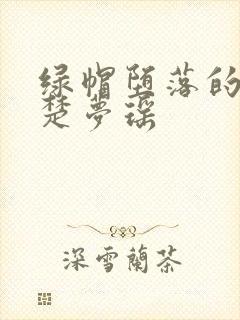 绿帽堕落的
楚夢瑶
深雪蘭茶